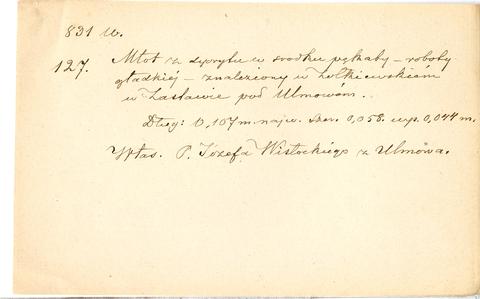 831 w.
127. Młot z dyorytu w srodku pękaty – roboty
gładkiej – znaleziony w Żołkiewskiem
w Zastawie pod Ulmowém..
Długi: 0,107 m. najw. Szer. 0,058. wys. 0,044 m.
Włas. P. Józefa Wisłockiego z Ulmowa.